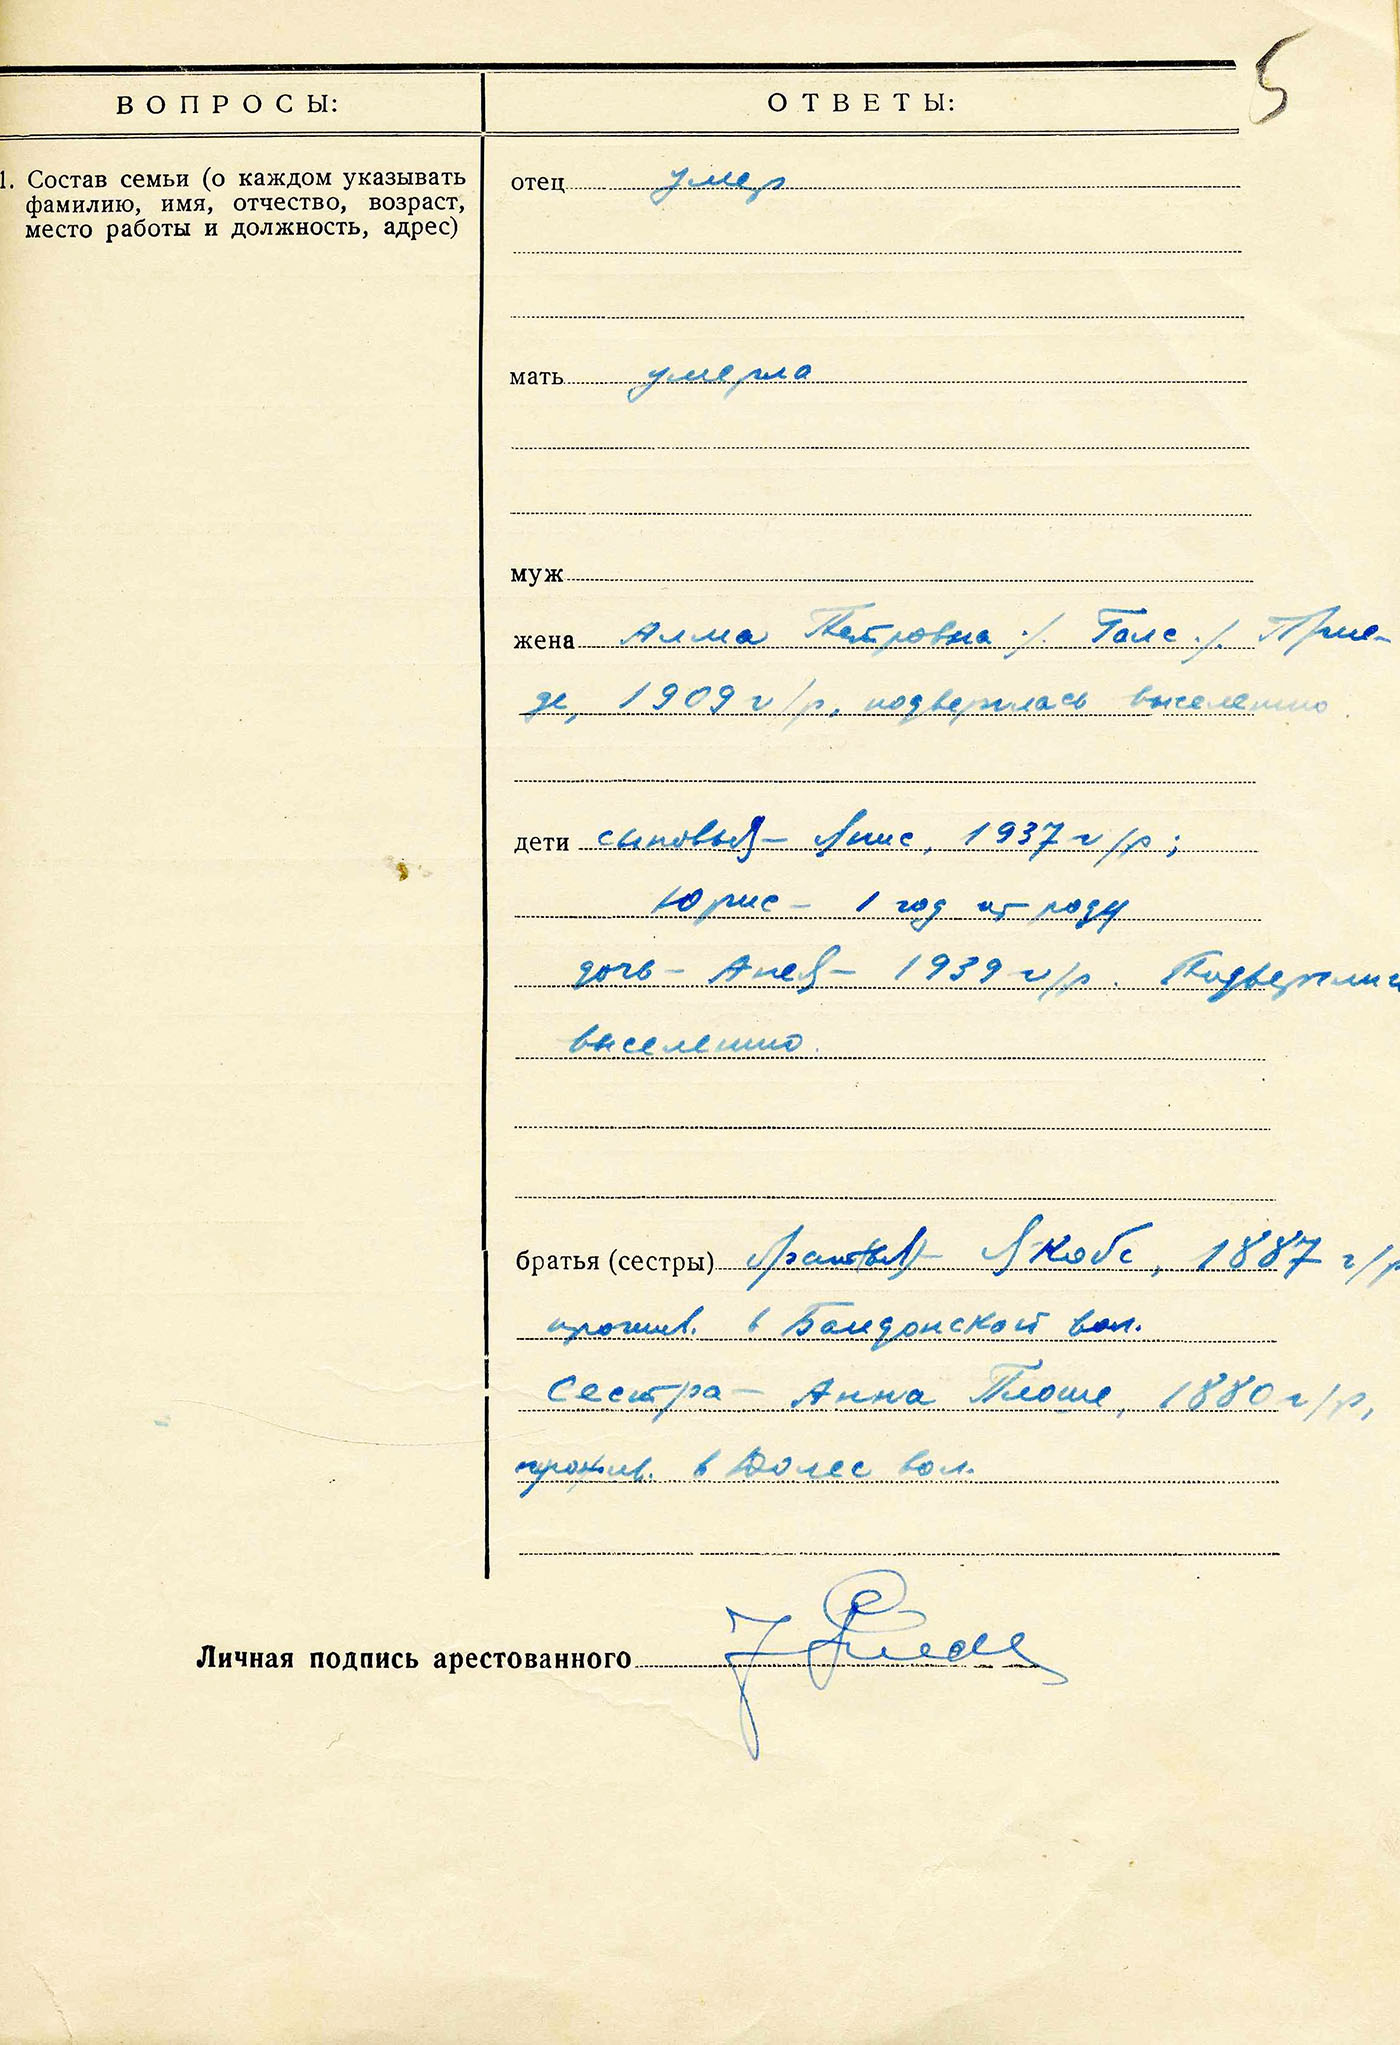 5
ВОПРОСЫ:
ОТВЕТЫ:
1. Состав семьи (о каждом указывать
фамилию, имя, отчество, возраст,
место работы и должность, адрес)
отец умер
мать умерла
муж
жена Алма Петровна /. Галс ./. Прие-
де, 1909 г/р, подверглась выселению.
дети сыновья – Янис, 1937 г/р;
Юрис – 1 год от роду
дочь – Анея – 1939 г/р. Подверглись
выселению.
братья (сестры) братья – Якобс, 1887 г/р
прожив. в Балдонской вол.
Сестра – Анна Плоше, 1880 г/р,
прожив. в Долес вол.
Личная подпись арестованного J Priede